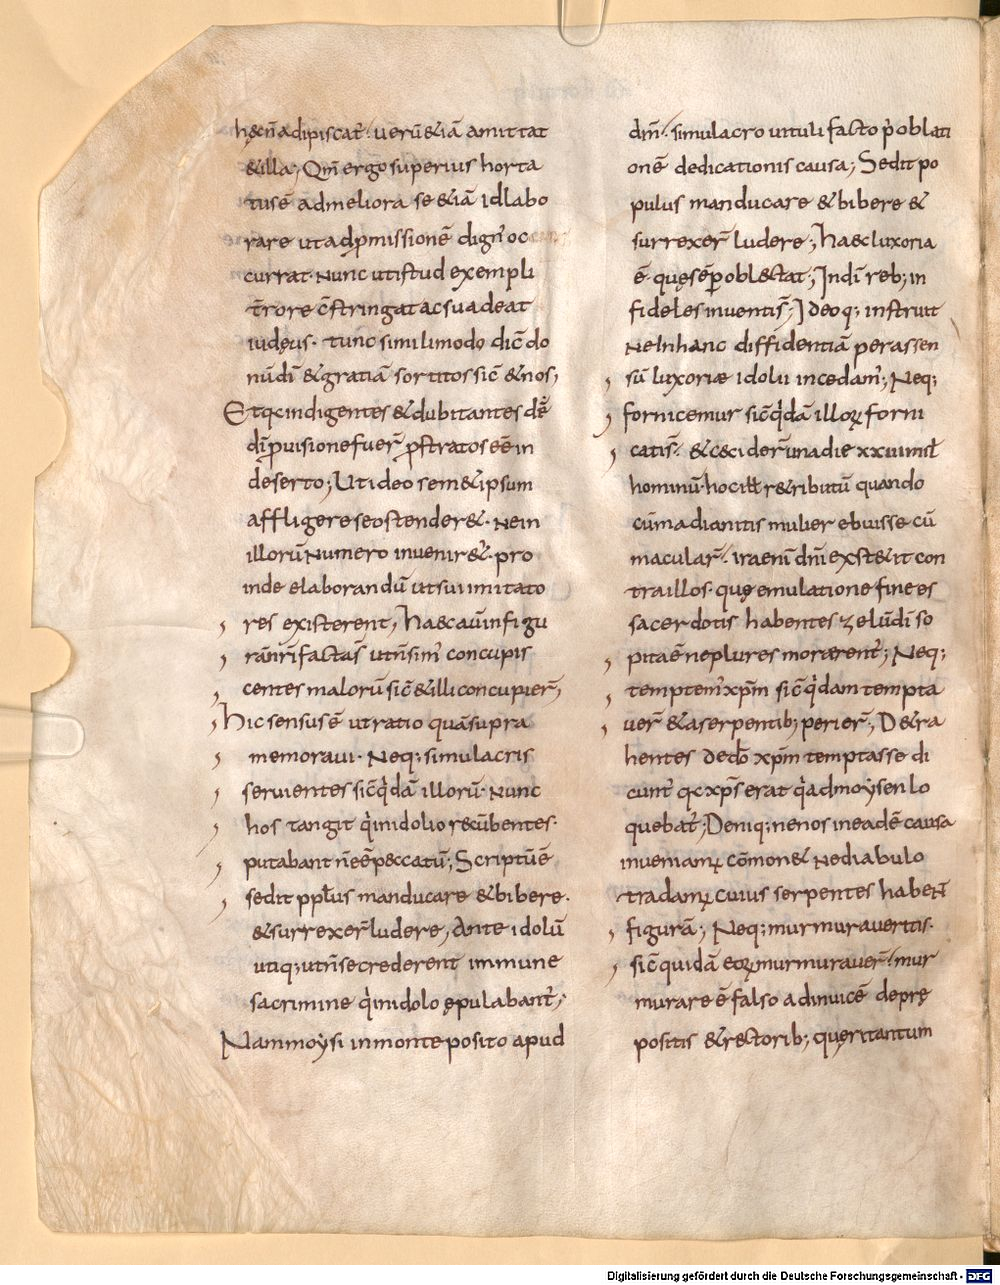 h&c n̄ adipiscat᷑. uerū &iā amittat
&illa; Qm̄ ergo superius horta
tus ē ad meliora se &iā id labo
rare ut ad p̱missionē dign᷒ oc
currat. Nunc ut istud exempli
t̄rore c̄stringat ac suadeat
iudęus. tunc simili modo dic̄ do
nū dī & gratiā sortitos sic̄ & nos;
Et qc indigentes & dubitantes dē
dī p̱uisione fuer̄ p̱stratos eē in
deserto; Uti deo sem & ipsum
affligere se ostender&. Ne in
illorū numero inuenir&. pro
inde elaborandū ut sui imitato
res existerent; Haec aūt in figu
rā nr̄i facta s̄ ut n̄ sim᷒ concupis
centes malorū sic̄ & illi concupier̄;
Hic sensus ē ut ratio quā supra
memoraui. Neq; simulacris
seruientes sic̄ q̇dā illorū. Nunc
hos tangit q̇ in idolio recūbentes.
putabant n̄ eē peccatū; Scriptū ē
sedit pplus manducare & bibere.
& surrexer̄ ludere; Ante idolū
utiq; ut n̄ se crederent immune
sa crimine q̇ in idolo ępulabant᷑;
Nam moẏsi in monte posito apud
dm̄. simulacro uituli facto p̱ oblati
onē dedicationis causa; Sedit po
pulus manducare & bibere &
surrexer̄ ludere; Haec luxoria
ē. quę sēp oblectat; In dn̄i reb; in
fideles inuenti s̄; Ideoq; instruit
Ne in hanc diffidentiā per assen
sū luxoriæ idolii incedam᷒; Neq;
fornicemur sic̄ q̇dā illoꝝ forni
cati s̄. & cecider̄ una die xxiii mil
hominū. hoc illt r&ributū quando
cū madianitis mulierebuis se cū
macular̄. ira enī dn̄i exstetit con
tra illos. quę emulatione finees
sacerdotis habentes zelū dī so
pita ē ne plures morarent᷑; Neq;
temptem᷒ xpm̄ sic̄ q̇dam tempta
uer̄ & a serpentib; perier̄; D&ra
hentes de dō xpm̄ temptasse di
cunt᷑ qc xps̄ erat q̇ ad moẏsen lo
quebat᷑; Deniq; ne nos in eadē causa
inueniamꝝ cōmon& Ne diabulo
tradamꝝ cuius serpentes habeN̄
figurā; Neq; murmuraueritis.
sic̄ quidā eoꝝ murmurauer̄. mur
murare ē falso ad inuicē de prę
positis & rectorib; quęri tantum
Digitalisierung gefördert durch die Deutsche Forschungsgemeinschaft - DFG